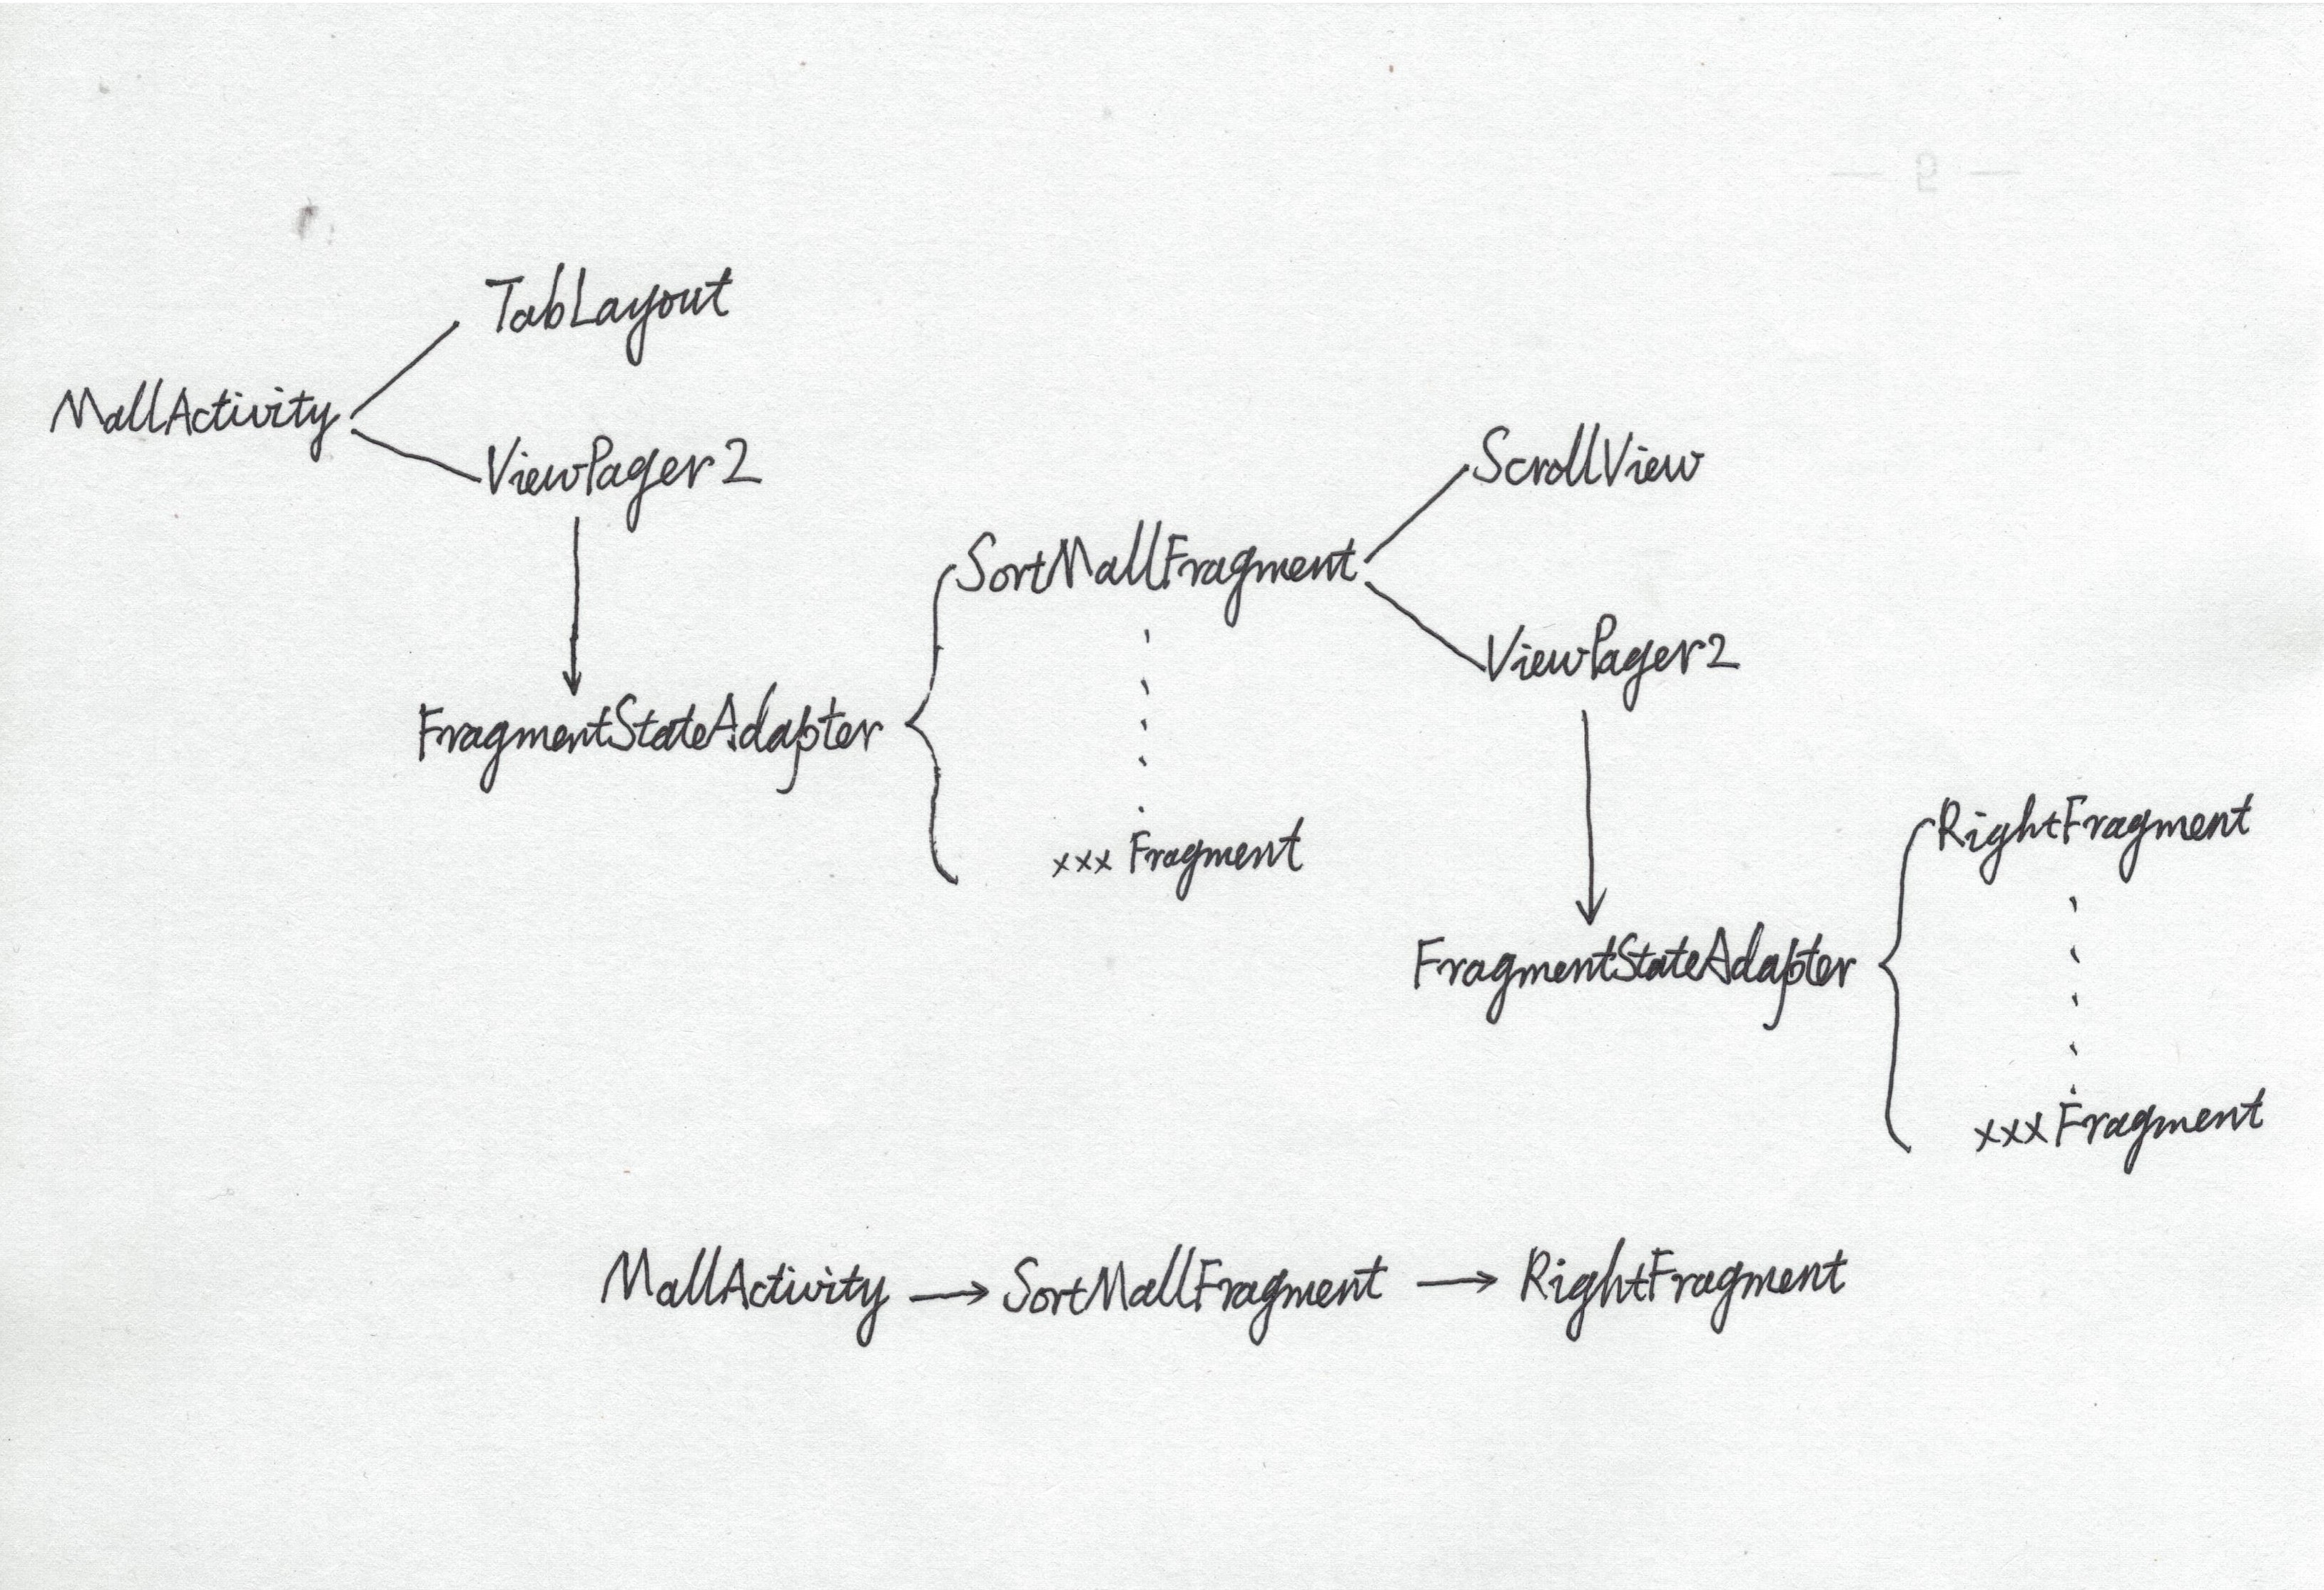 TabLayout
MallActivity
ViewPager2
ScrollView
SortMallFragment
ViewPager2
FragmentStateAdapter
xxx Fragment
RightFragment
FragmentStateAdapter
xxxFragment
MallActivity → SortMallFragment → RightFragment